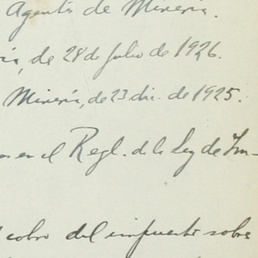 Agentes de Minería.
ría, de 28 de julio de 1926.
Minería, de 23 dic. de 1925.
en el Regl. de la Ley de Im-
cobro del impuesto sobre